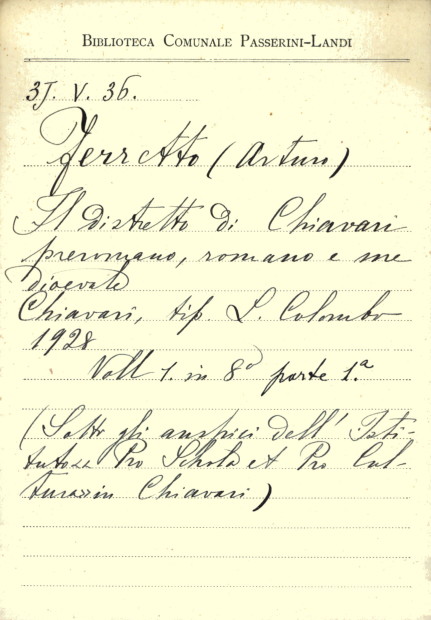 BIBLIOTECA COMUNALE PASSERINI-LANDI
3J. V. 36.
Ferretto (Arturo)
Il distretto di Chiavari
preromano, romano e me
dioevale
Chiavari, tip. L. Colombo
1928
Voll 1. in 8° parte 1.ª
(Sotto gli auspici dell' Isti-
tuto « Pro Schola et Pro Cul-
tura » in Chiavari)